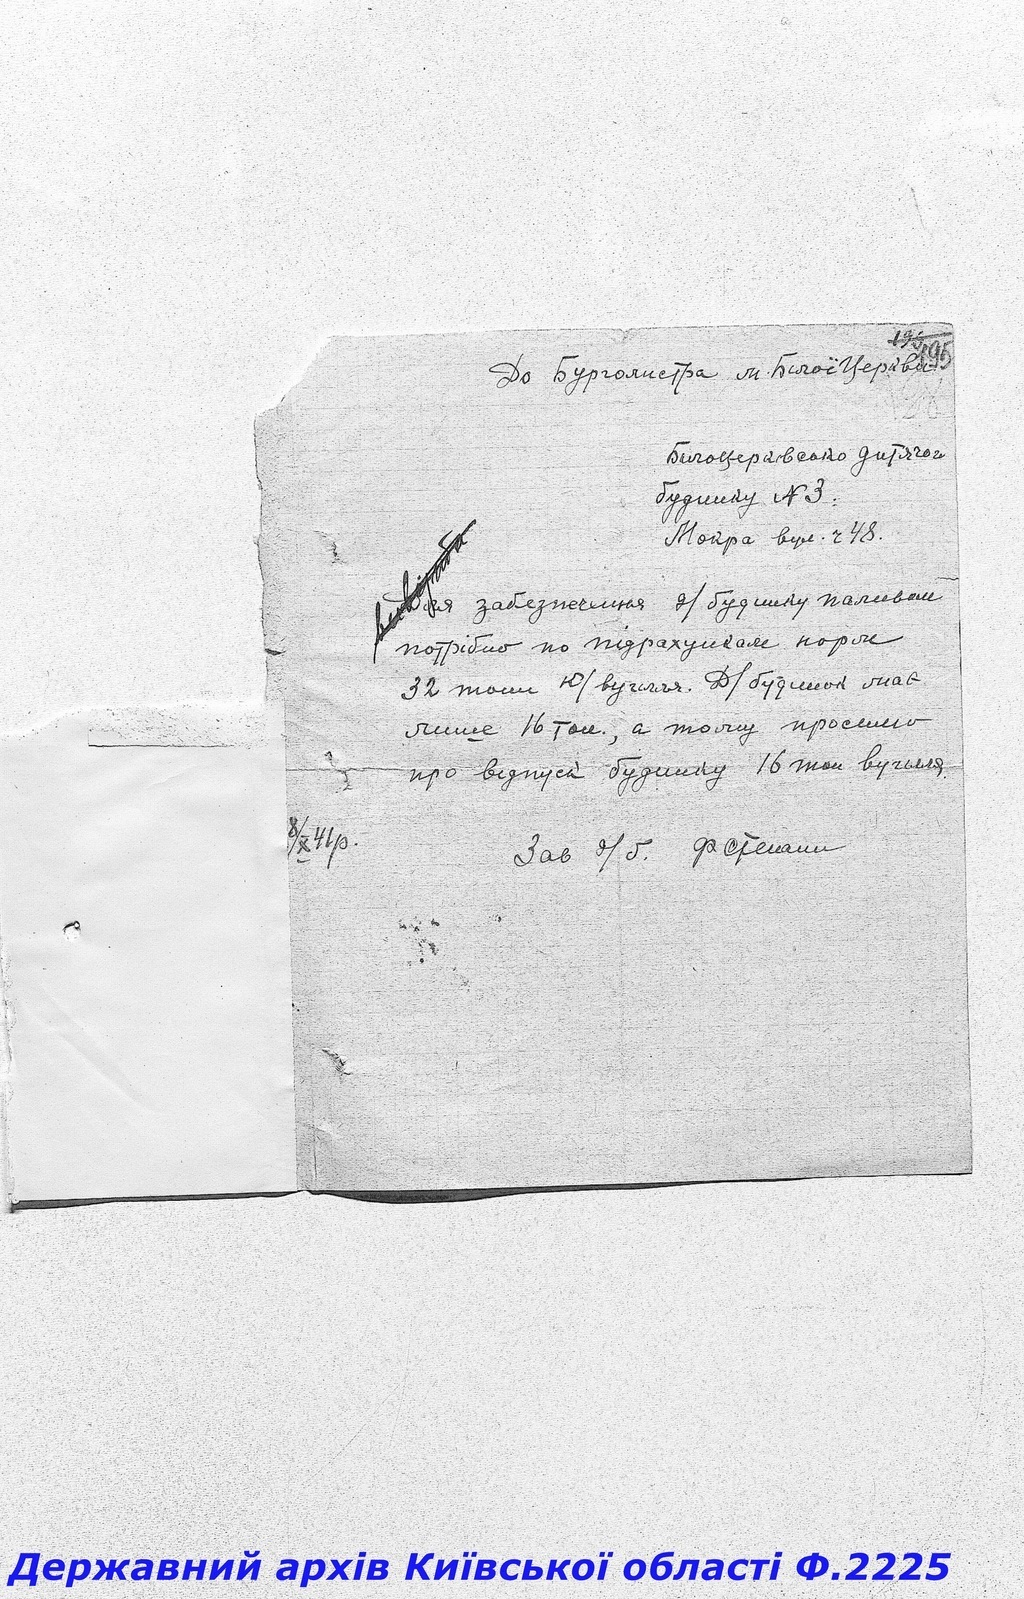 195
До Бургомистра м. Білої Церкви
Білоцерківсько дитячого
будинку №3.
Мокра вул. ч 48.
Для забезпечення д/будинку паливом
потрібно по підрахункам норм
32 тони Ю/вугілля. Д/будинок має
лише 16 тон., а тому просимо
про відпуск будинку 16 тон вугілля.
8/X 41р.
Зав д/б.
Державний архів Київської області Ф.2225